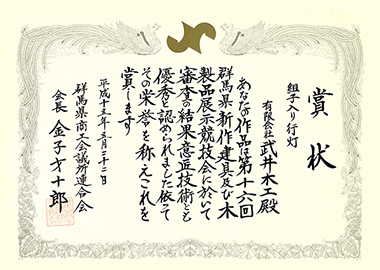 賞状
組子入り行灯
有限会社 武井木工殿
あなたの作品は第十六回
群馬県新作建具及び木
製品展示競技会に於いて
審査の結果意匠技術とも
優秀と認められました依って
その栄誉を称えこれを
賞します
平成十五年三月二十二日
群馬県商工会議所連合会
会長 金子才十郎